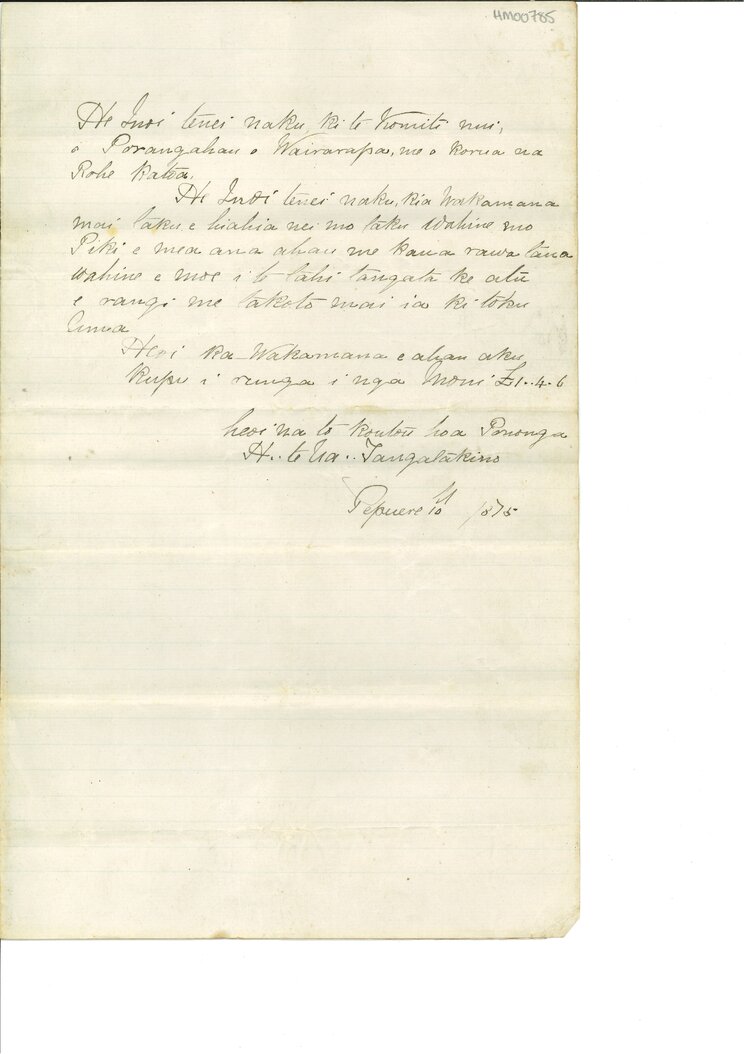 HM00785
He Inoi tenei naku, ki te Komiti nui,
o Porangahau o Wairarapa, me o korua na
Rohe katoa.
He Inoi tenei naku, kia Wakamana
mai taku e hiahia nei mo taku wahine mo
Piki e mea ana ahau me kaua rawa taua
wahine e moe i te tahi tangata ke atu
e rangi me takoto mai ia ki toku
Uma
Heoi ka Wakamana e ahau aku
kupu i runga i nga moni £1..4.6
heoi na to koutou hoa Pononga
H.. te Ua.. Tangatakino
Pepuere 10 1875